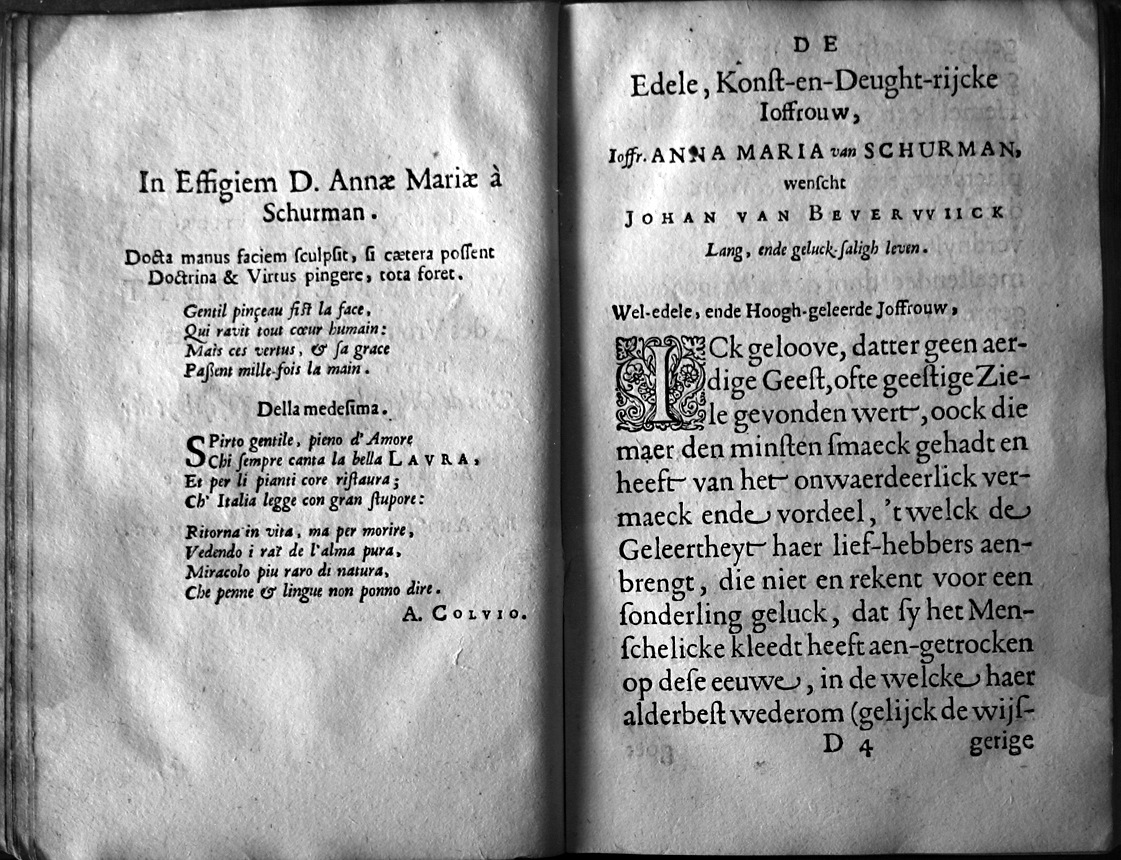 In Effigiem D. Annæ Mariæ à
Schurman.
Docta manus faciem ſculpſit, ſi cætera poſſent
Doctrina & Virtus pingere, tota foret.
Gentil pinçeau fiſt la face,
Qui ravit tout cœur humain:
Mais ces vertus, & ſa grace
Paſſent mille-fois la main.
Della medeſima.
SPirto gentile, pieno d'Amore
Chi ſempre canta la bella LAVRA,
Et per li pianti core riſtaura;
Ch' Italia legge con gran ſtupore:
Ritorna in vita, ma per morire,
Vedendo i rai de l'alma pura,
Miracolo piu raro di natura,
Che penne & lingue non ponno dire.
A. COLVIO.
DE
Edele, Konſt-en-Deught-rijcke
Ioffrouw,
Ioffr. ANNA MARIA van SCHURMAN,
wenſcht
JOHAN VAN BEVERVVIICK
Lang, ende geluck-ſaligh leven.
Wel-edele, ende Hoogh-geleerde Joffrouw,
ICk geloove, datter geen aer-
dige Geeſt, ofte geeſtige Zie-
le gevonden wert, oock die
maer den minſten ſmaeck gehadt en
heeft van het onwaerdeerlick ver-
maeck ende vordeel, 't welck de
Geleertheyt haer lief-hebbers aen-
brengt, die niet en rekent voor een
ſonderling geluck, dat ſy het Men-
ſchelicke kleedt heeft aen-getrocken
op deſe eeuwe, in de welcke haer
alderbeſt wederom (gelijck de wijſ-
D 4 gerige